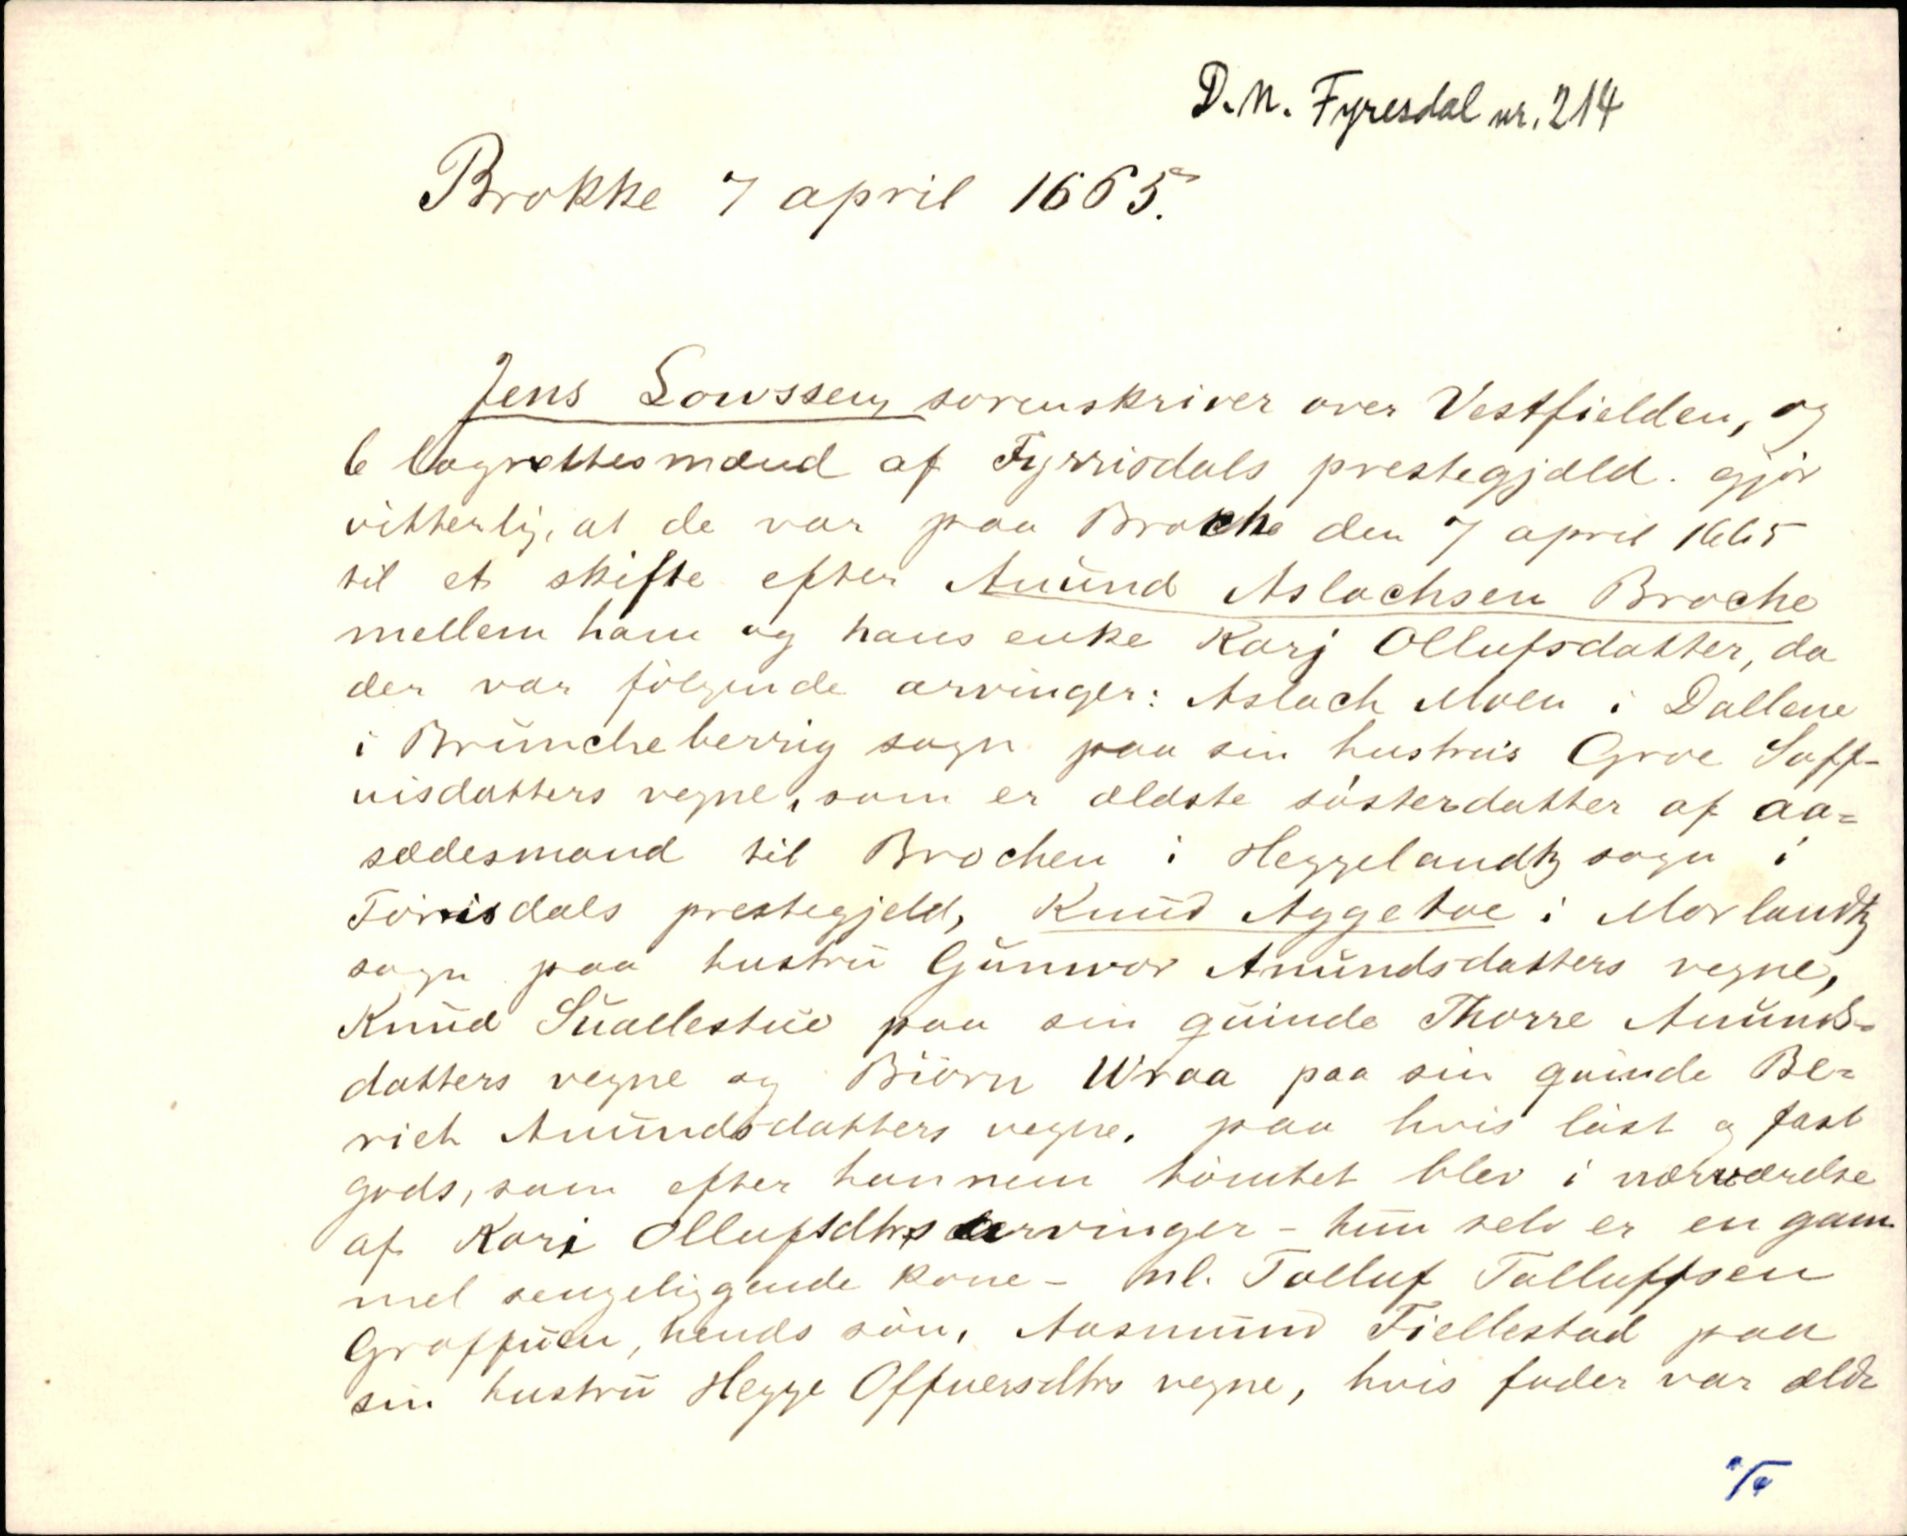 D.N. Fyresdal nr. 214
Brokke 7 april 1665.
Jens Lowssen, sorenskriver over Vestfielden, og
6 lagrettesmænd af Fyrrisdals prestegjæld. gjör
vitterlig, at de var paa Broche den 7 april 1665
til et skifte efter Anund Aslachsen Broche
mellem ham og hans enke Karj Ollufsdatter, da
der var fölgende arvinger: Aslach Moen i Dallene
i Brüncheberrig sogn paa sin hustrus Groe Saff-
uisdatters vegne, som er ældste sösterdatter af aa=
sædesmand til Brochen i Heggelandtz sogn i
Förrisdals prestegjeld, Knud Aggetoe i Morlandtz
sogn paa hustrü Günwor Anündsdatters vegne,
Knüd Süallestüe paa sin qüinde Thorre Anünds-
datters vegne og Biörn Wraa paa sin quinde Be=
rich Anündsdatters vegne, paa hvis löst og fast
gods, som efter hannem tömtet blev i nærværelse
af Kari Ollufsdtrs arvinger - hun selv er en gam
mel sengeliggende kone - nl. Tolluf Tolluffsen
Groffüen, hends sön, Aasmünd Fiellestad paa
sin hustrü Hegge Offuersdtrs vegne, hvis fader var ælds